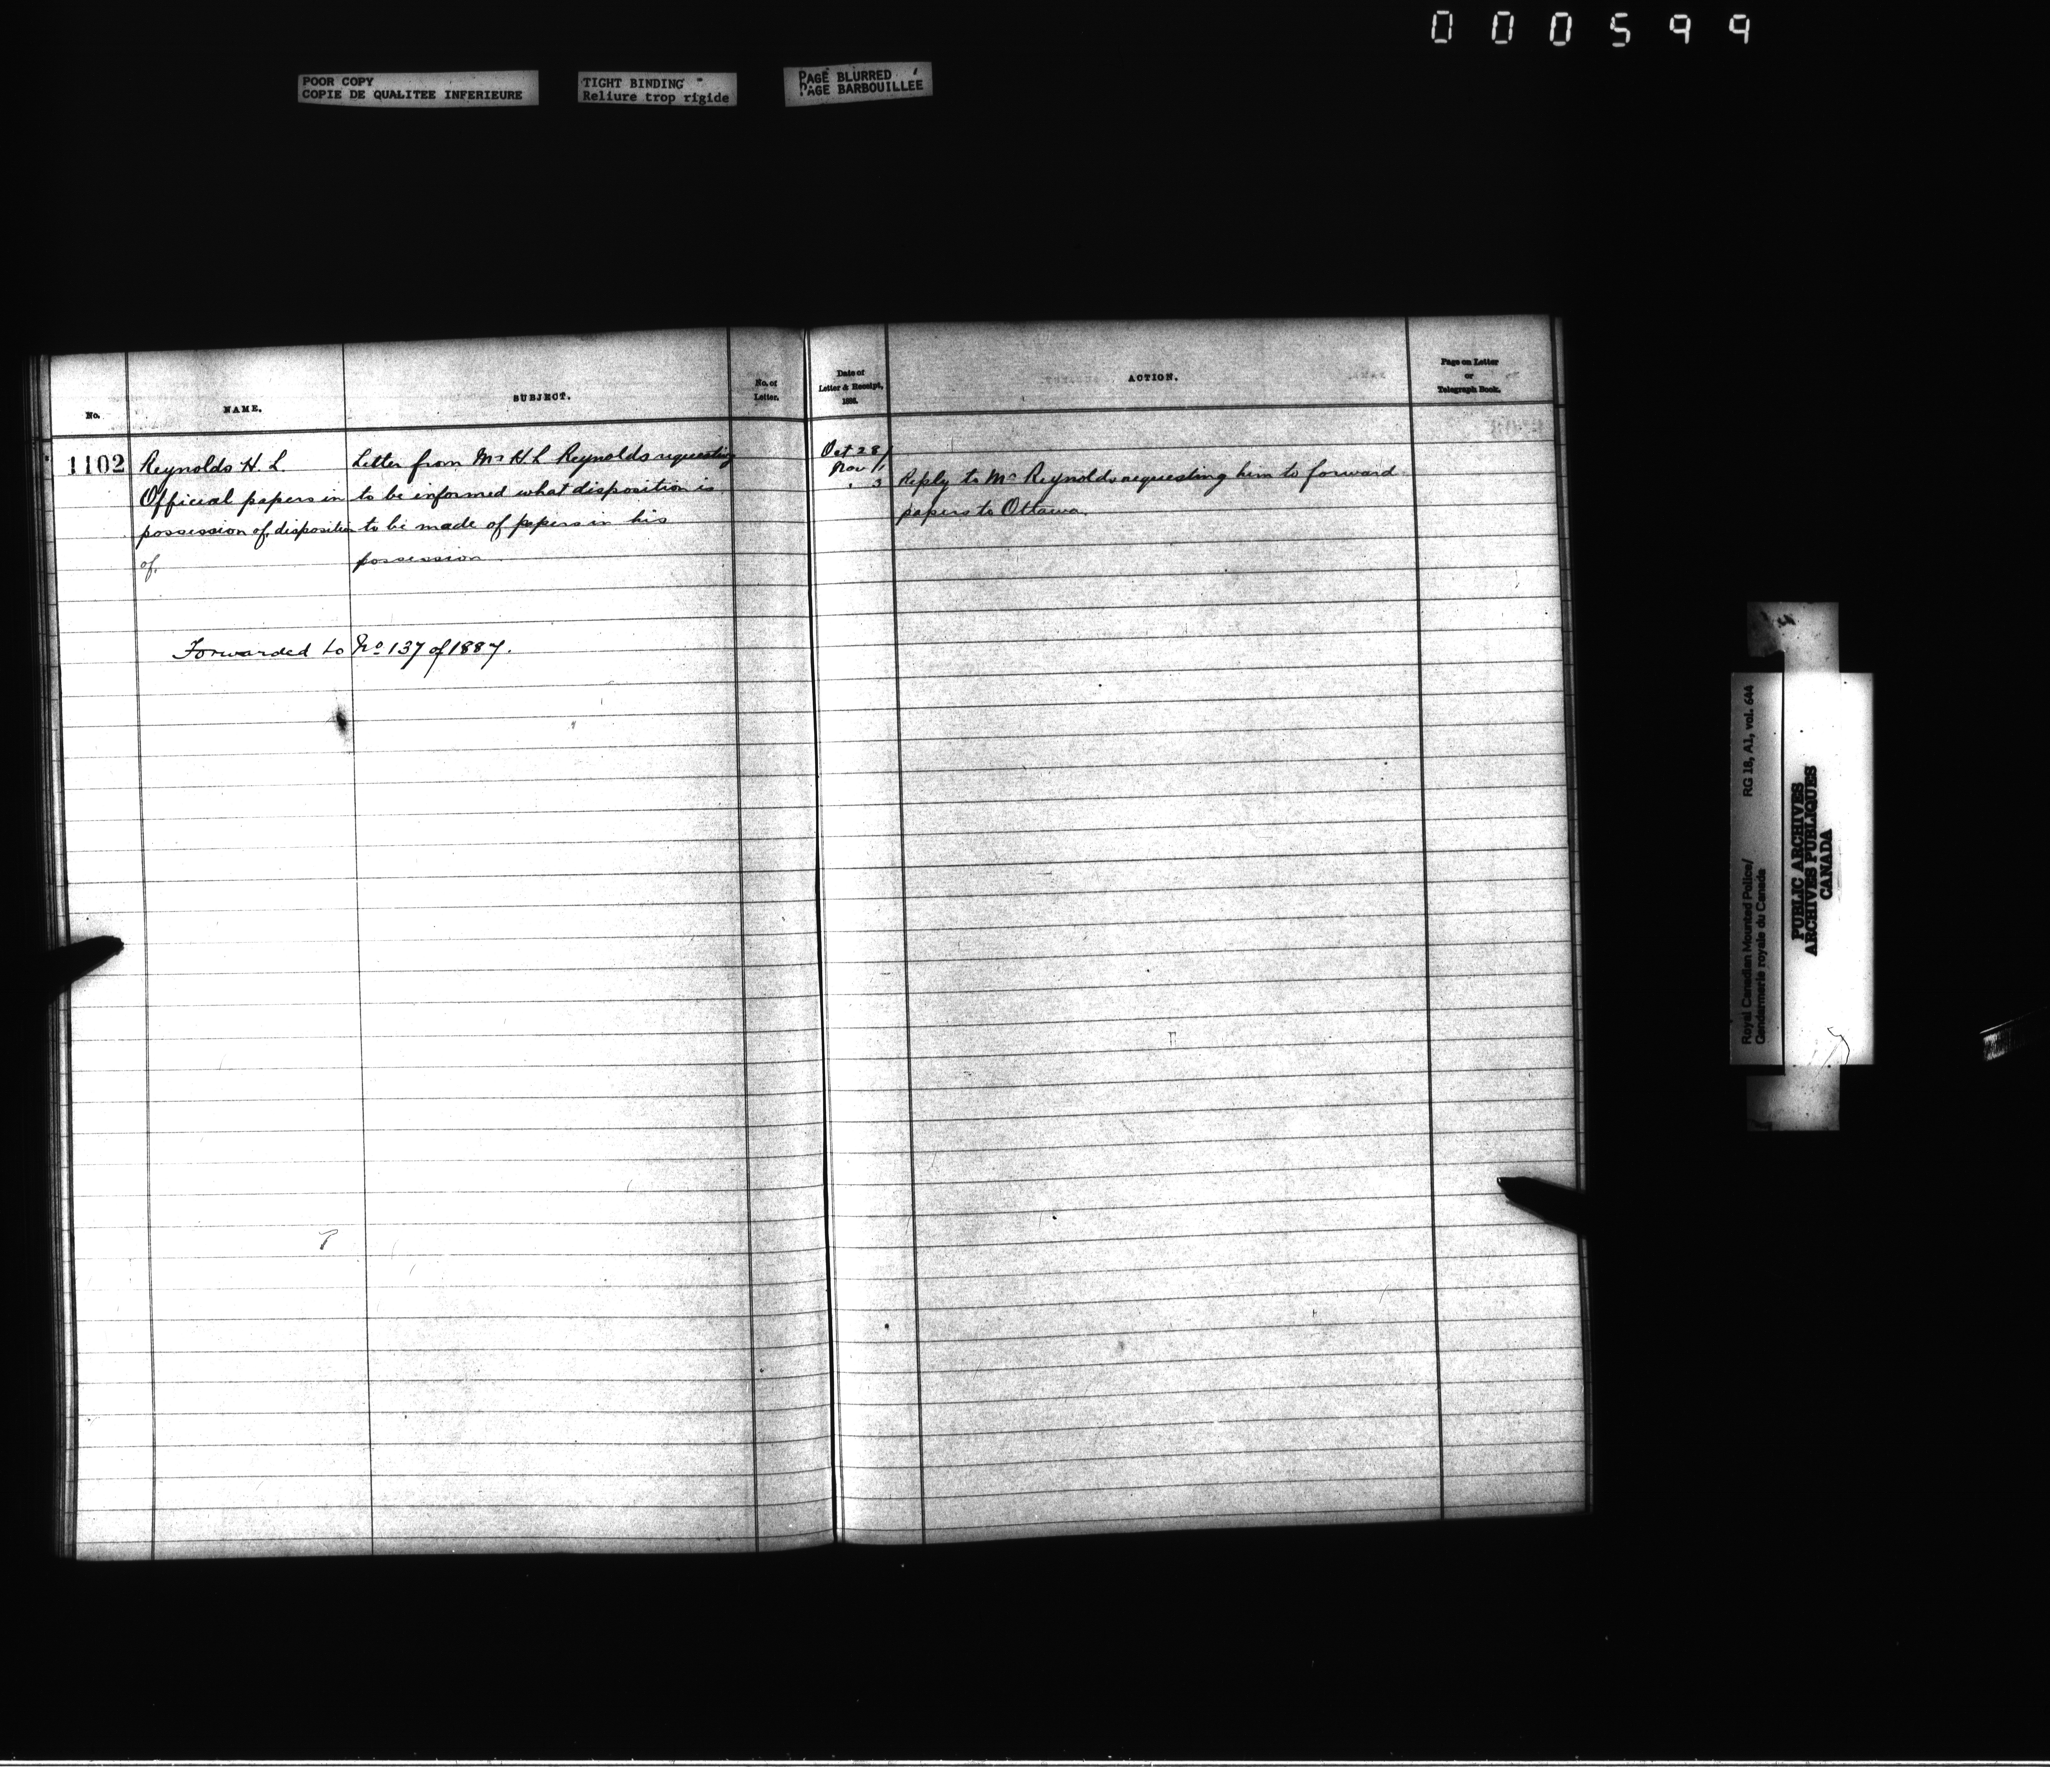 000599
POOR COPY
COPIE DE QUALITEE INFERIEURE
TIGHT BINDING
Reliure trop rigide
PAGE BLURRED
PAGE BARBOUILLEE
No.
NAME.
SUBJECT.
No. of
Letter.
Date of
Letter & Receipt,
1886.
ACTION.
Page on Letter
or
Telegraph Book.
1102
Reynolds H. L.
Official papers in
possession of, disposition
of,
Letter from Mr H L Reynolds requesting
to be informed what disposition is
to be made of papers in his
possession
Forwarded to No 137 of 1887.
Oct 28/
Nov 1
" 3
Reply to Mr Reynolds requesting him to forward
papers to Ottawa.
RG 18, A1, vol. 644
Royal Canadian Mounted Police/
Gendarmerie royale du Canada
PUBLIC ARCHIVES
ARCHIVES PUBLIQUES
CANADA